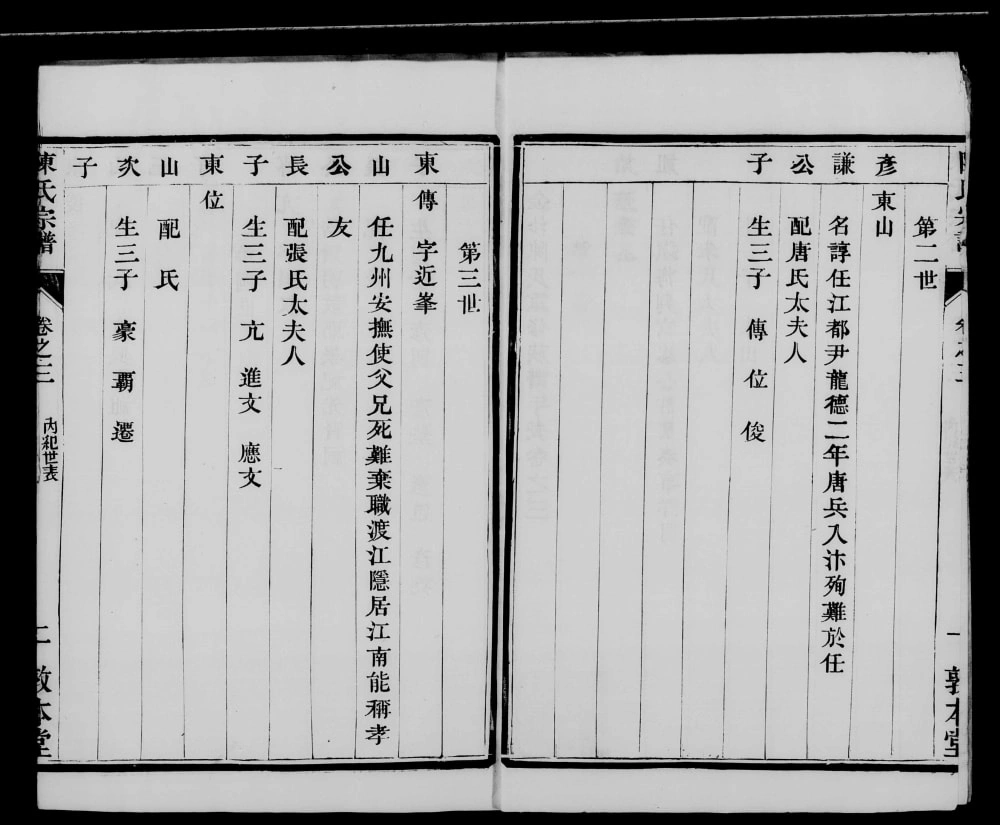 第二世
彥 東山
謙 名諄任江都尹龍德二年唐兵入汴殉難於任
公 配唐氏太夫人
子 生三子 傳 位 俊
陳氏宗譜 卷之三 一 敦本堂
第三世
東 傳 字近峯
山 任九州安撫使父兄死難棄職渡江隱居江南能稱孝
公 友
長 配張氏太夫人
子 生三子 亢 進文 應文
東 位
山 配 氏
次 生三子 豪 覇 遷
子
陳氏宗譜 卷之三 內紀世表 二 敦本堂